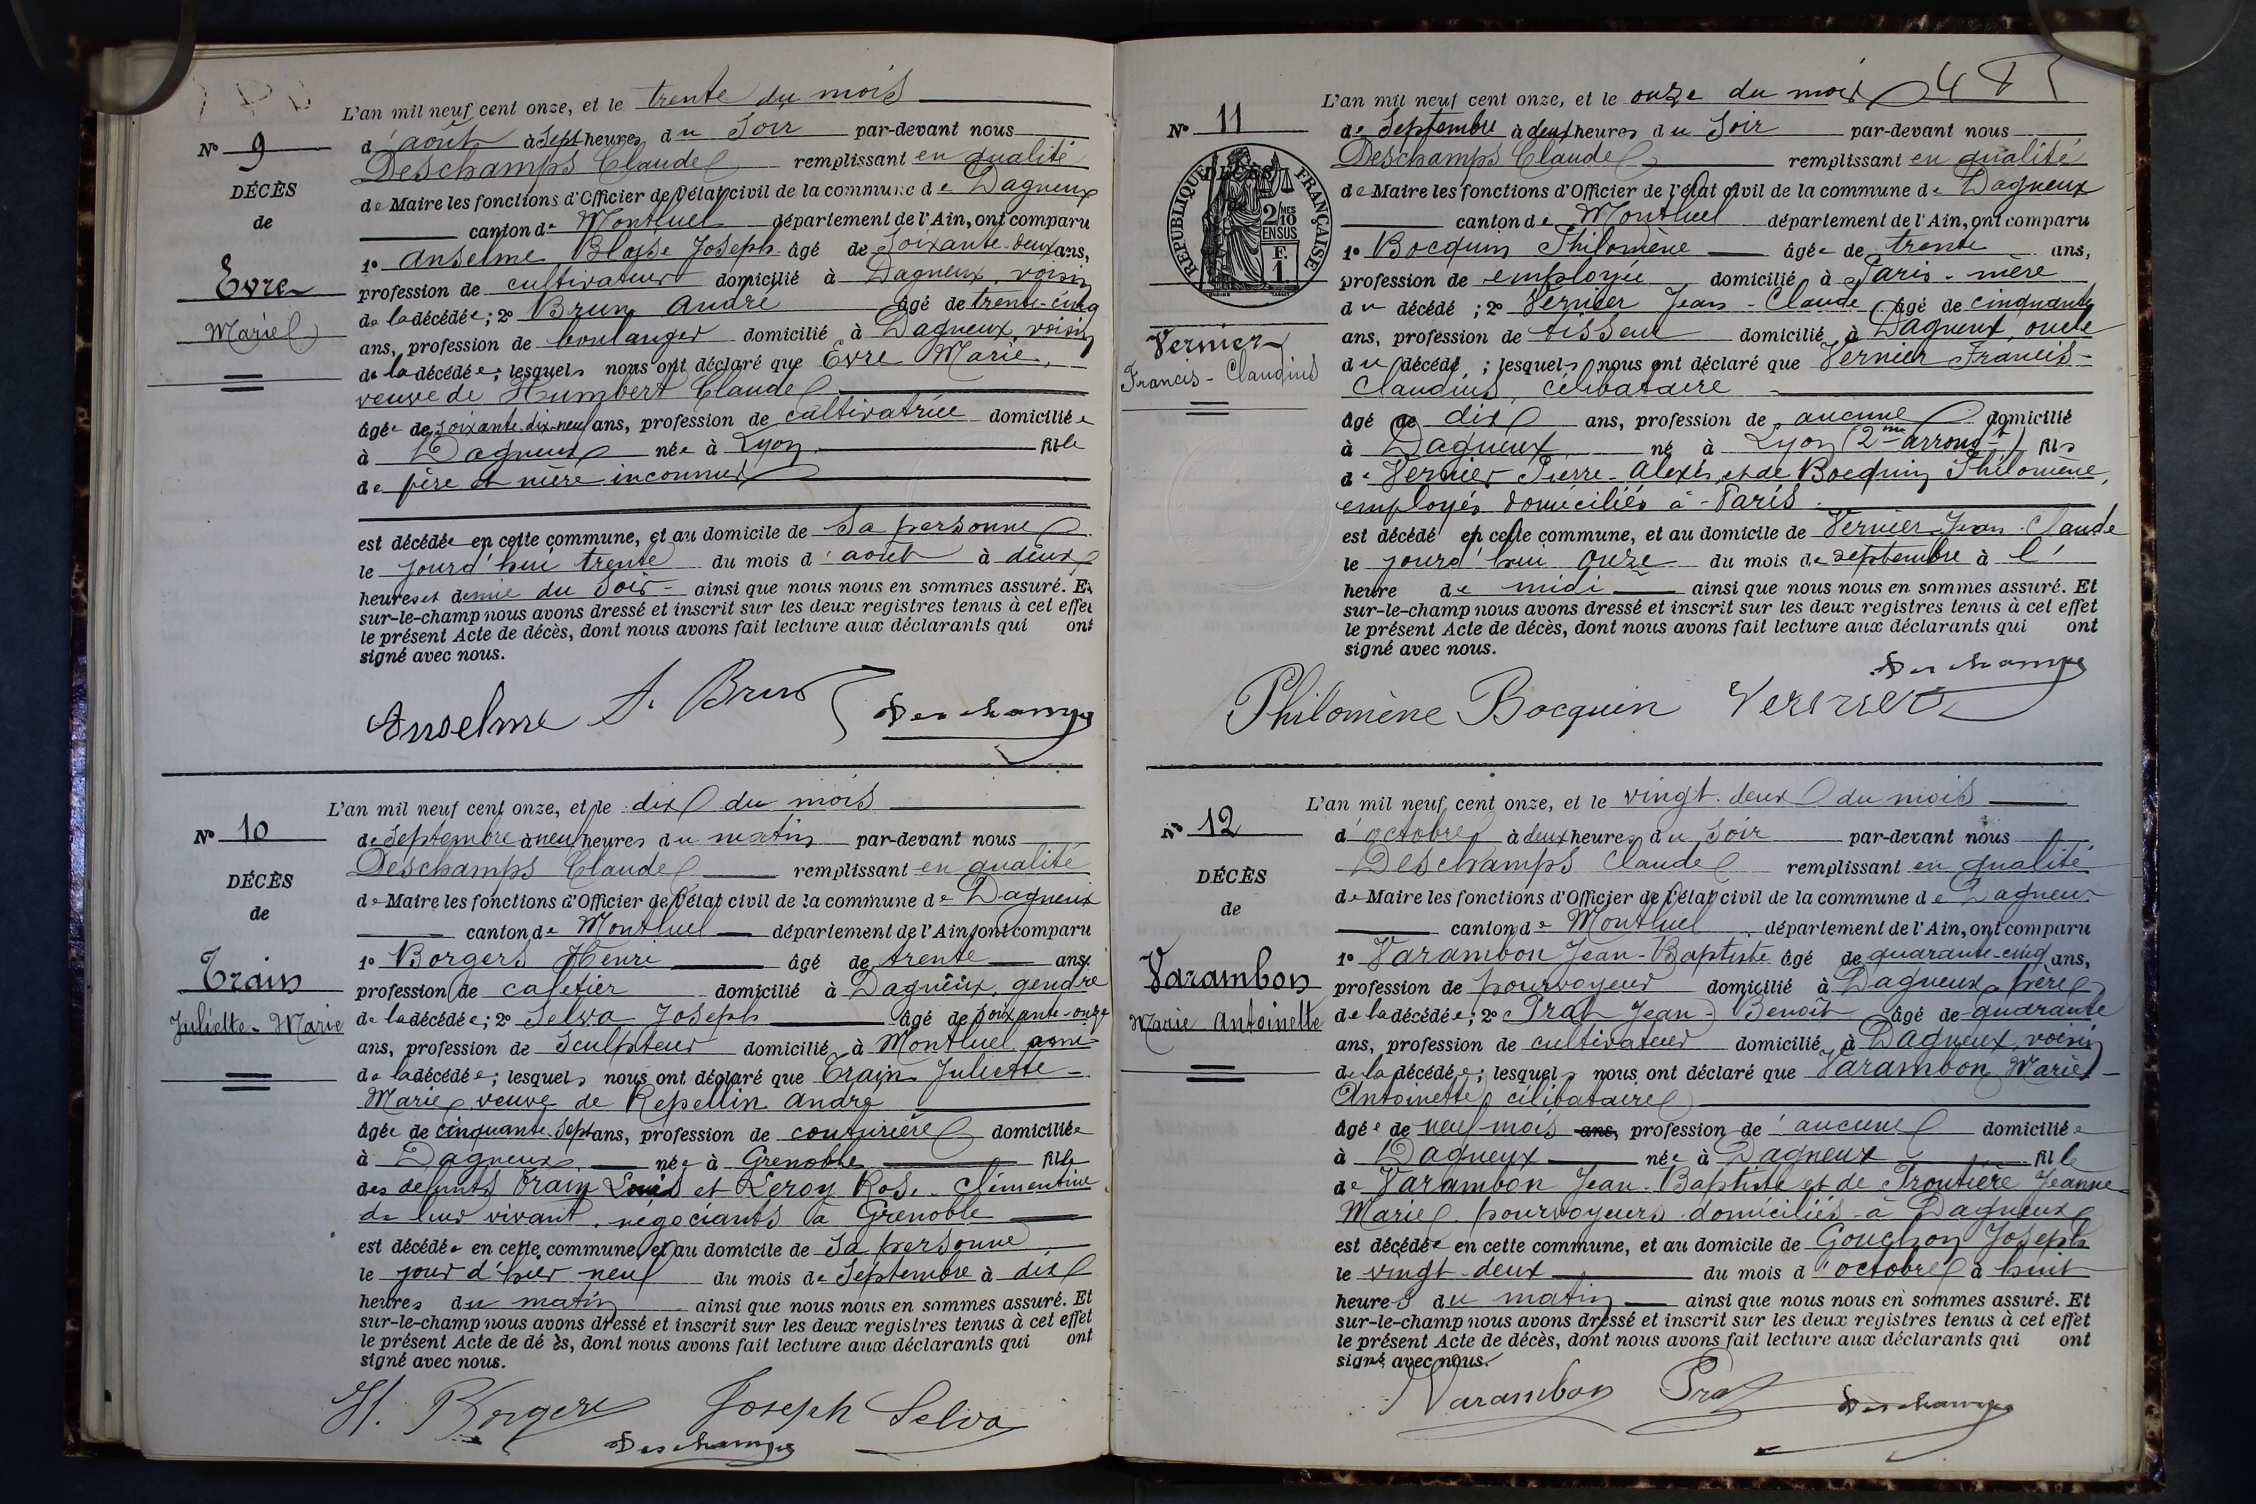 L'an mil neuf cent onze, et le trente du mois
N° 9
d'août à Sept heures du Soir par-devant nous
Deschamps Claude remplissant en qualité
DÉCÈS
de Maire les fonctions d'Officier de l'état civil de la commune de Dagneux
de
canton de Montluel département de l'Ain, ont comparu
1° Anselme Blaise Joseph âgé de Soixante-deux ans,
Evre
profession de cultivateur domicilié à Dagneux, voisin
de la décédée; 2° Brun André âgé de trente-cinq
Marie
ans, profession de boulanger domicilié à Dagneux, voisin
de la décédée; lesquels nous ont déclaré que Evre Marie,
veuve de Humbert Claude
âgée de soixante-dix-neuf ans, profession de cultivatrice domiciliée
à Dagneux née à Lyon fille
de père et mère inconnus
est décédée en cette commune, et au domicile de Sa personne
le jourd'hui trente du mois d'août à deux
heures et demie du Soir ainsi que nous nous en sommes assuré. Et
sur-le-champ nous avons dressé et inscrit sur les deux registres tenus à cet effet
le présent Acte de décès, dont nous avons fait lecture aux déclarants qui ont
signé avec nous.
Anselme A. Brun Deschamps
L'an mil neuf cent onze, et le dix du mois
N° 10
de Septembre à neuf heures du matin par-devant nous
Deschamps Claude remplissant en qualité
DÉCÈS
de Maire les fonctions d'Officier de l'état civil de la commune de Dagneux
de
canton de Montluel département de l'Ain, ont comparu
1° Borgers Henri âgé de trente ans,
Train
profession de cafetier domicilié à Dagneux, gendre
Juliette-Marie
de la décédée; 2° Selva Joseph âgé de soixante-onze
ans, profession de Sculpteur domicilié à Montluel ami
de la décédée; lesquels nous ont déclaré que Train Juliette-
Marie veuve de Repellin André
âgée de cinquante-sept ans, profession de couturière domiciliée
à Dagneux née à Grenoble fille
des défunts Train Louis et Leroy Rose-Clémentine
de leur vivant négociants à Grenoble
est décédée en cette commune, et au domicile de Sa personne
le jour d'hier neuf du mois de Septembre à dix
heures du matin ainsi que nous nous en sommes assuré. Et
sur-le-champ nous avons dressé et inscrit sur les deux registres tenus à cet effet
le présent Acte de dé ès, dont nous avons fait lecture aux déclarants qui ont
signé avec nous.
H. Borgers Joseph Selva
Deschamps
L'an mil neuf cent onze, et le onze du mois
N° 11
de Septembre à deux heures du Soir par-devant nous
Deschamps Claude remplissant en qualité
DÉCÈS
RÉPUBLIQUE FRANÇAISE
2/10 MES
EN SUS
F. 1
de Maire les fonctions d'Officier de l'état civil de la commune de Dagneux
canton de Montluel département de l'Ain, ont comparu
1° Bocquin Philomène âgée de trente ans,
profession de employée domicilié à Paris - mère
du décédé; 2° Vernier Jean-Claude âgé de cinquante
ans, profession de tisseur domicilié à Dagneux, oncle
Vernier
du décédé; lesquels nous ont déclaré que Vernier Francis-
Francis-Claudius
Claudius, célibataire
âgé de dix ans, profession de aucune domicilié
à Dagneux né à Lyon (2me arrondt) fils
de Vernier Pierre-Alexis et de Bocquin Philomène,
employés domiciliés à Paris
est décédé en cette commune, et au domicile de Vernier Jean-Claude
le jourd'hui onze du mois de septembre à l'
heure de midi ainsi que nous nous en sommes assuré. Et
sur-le-champ nous avons dressé et inscrit sur les deux registres tenus à cet effet
le présent Acte de décès, dont nous avons fait lecture aux déclarants qui ont
signé avec nous.
Deschamps
Philomène Bocquin Vernier
L'an mil neuf cent onze, et le vingt-deux du mois
N° 12
d'octobre à deux heures du Soir par-devant nous
Deschamps Claude remplissant en qualité
DÉCÈS
de Maire les fonctions d'Officier de l'état civil de la commune de Dagneux
de
canton de Montluel département de l'Ain, ont comparu
1° Varambon Jean-Baptiste âgé de quarante-cinq ans,
Varambon
profession de pourvoyeur domicilié à Dagneux père
Marie Antoinette
de la décédée; 2° Prat Jean-Benoît âgé de quarante
ans, profession de cultivateur domicilié à Dagneux, voisin
de la décédée; lesquels nous ont déclaré que Varambon Marie-
Antoinette célibataire
âgée de neuf mois ans, profession de aucune domiciliée
à Dagneux née à Dagneux fille
de Varambon Jean-Baptiste et de Troutière Jeanne-
Marie pourvoyeurs domiciliés à Dagneux
est décédée en cette commune, et au domicile de Gouchon Joseph
le vingt-deux du mois d'octobre à huit
heures du matin ainsi que nous nous en sommes assuré. Et
sur-le-champ nous avons dressé et inscrit sur les deux registres tenus à cet effet
le présent Acte de décès, dont nous avons fait lecture aux déclarants qui ont
signé avec nous.
Varambon Prat Deschamps